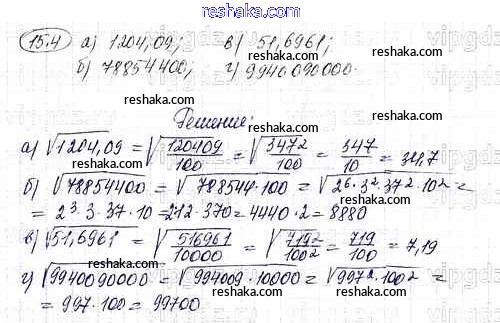 reshaka.com
15.4 а) 1204,09; в) 51,6961;
reshaka.com
б) 78854400; г) 9940090000.
reshaka.com
Решение:
reshaka.com
а) √1204,09 = √120409/100 = √347²/100 = 347/10 = 34,7
reshaka.com
б) √78854400 = √788544·100 = √2⁶·3²·37²·10² =
= 2³·3·37·10 = 212·370 = 4440·2 = 8880
reshaka.com
в) √51,6961 = √516961/10000 = √719²/100² = 719/100 = 7,19
reshaka.com
г) √9940090000 = √994009·10000 = √997²·100² =
= 997·100 = 99700
reshaka.com